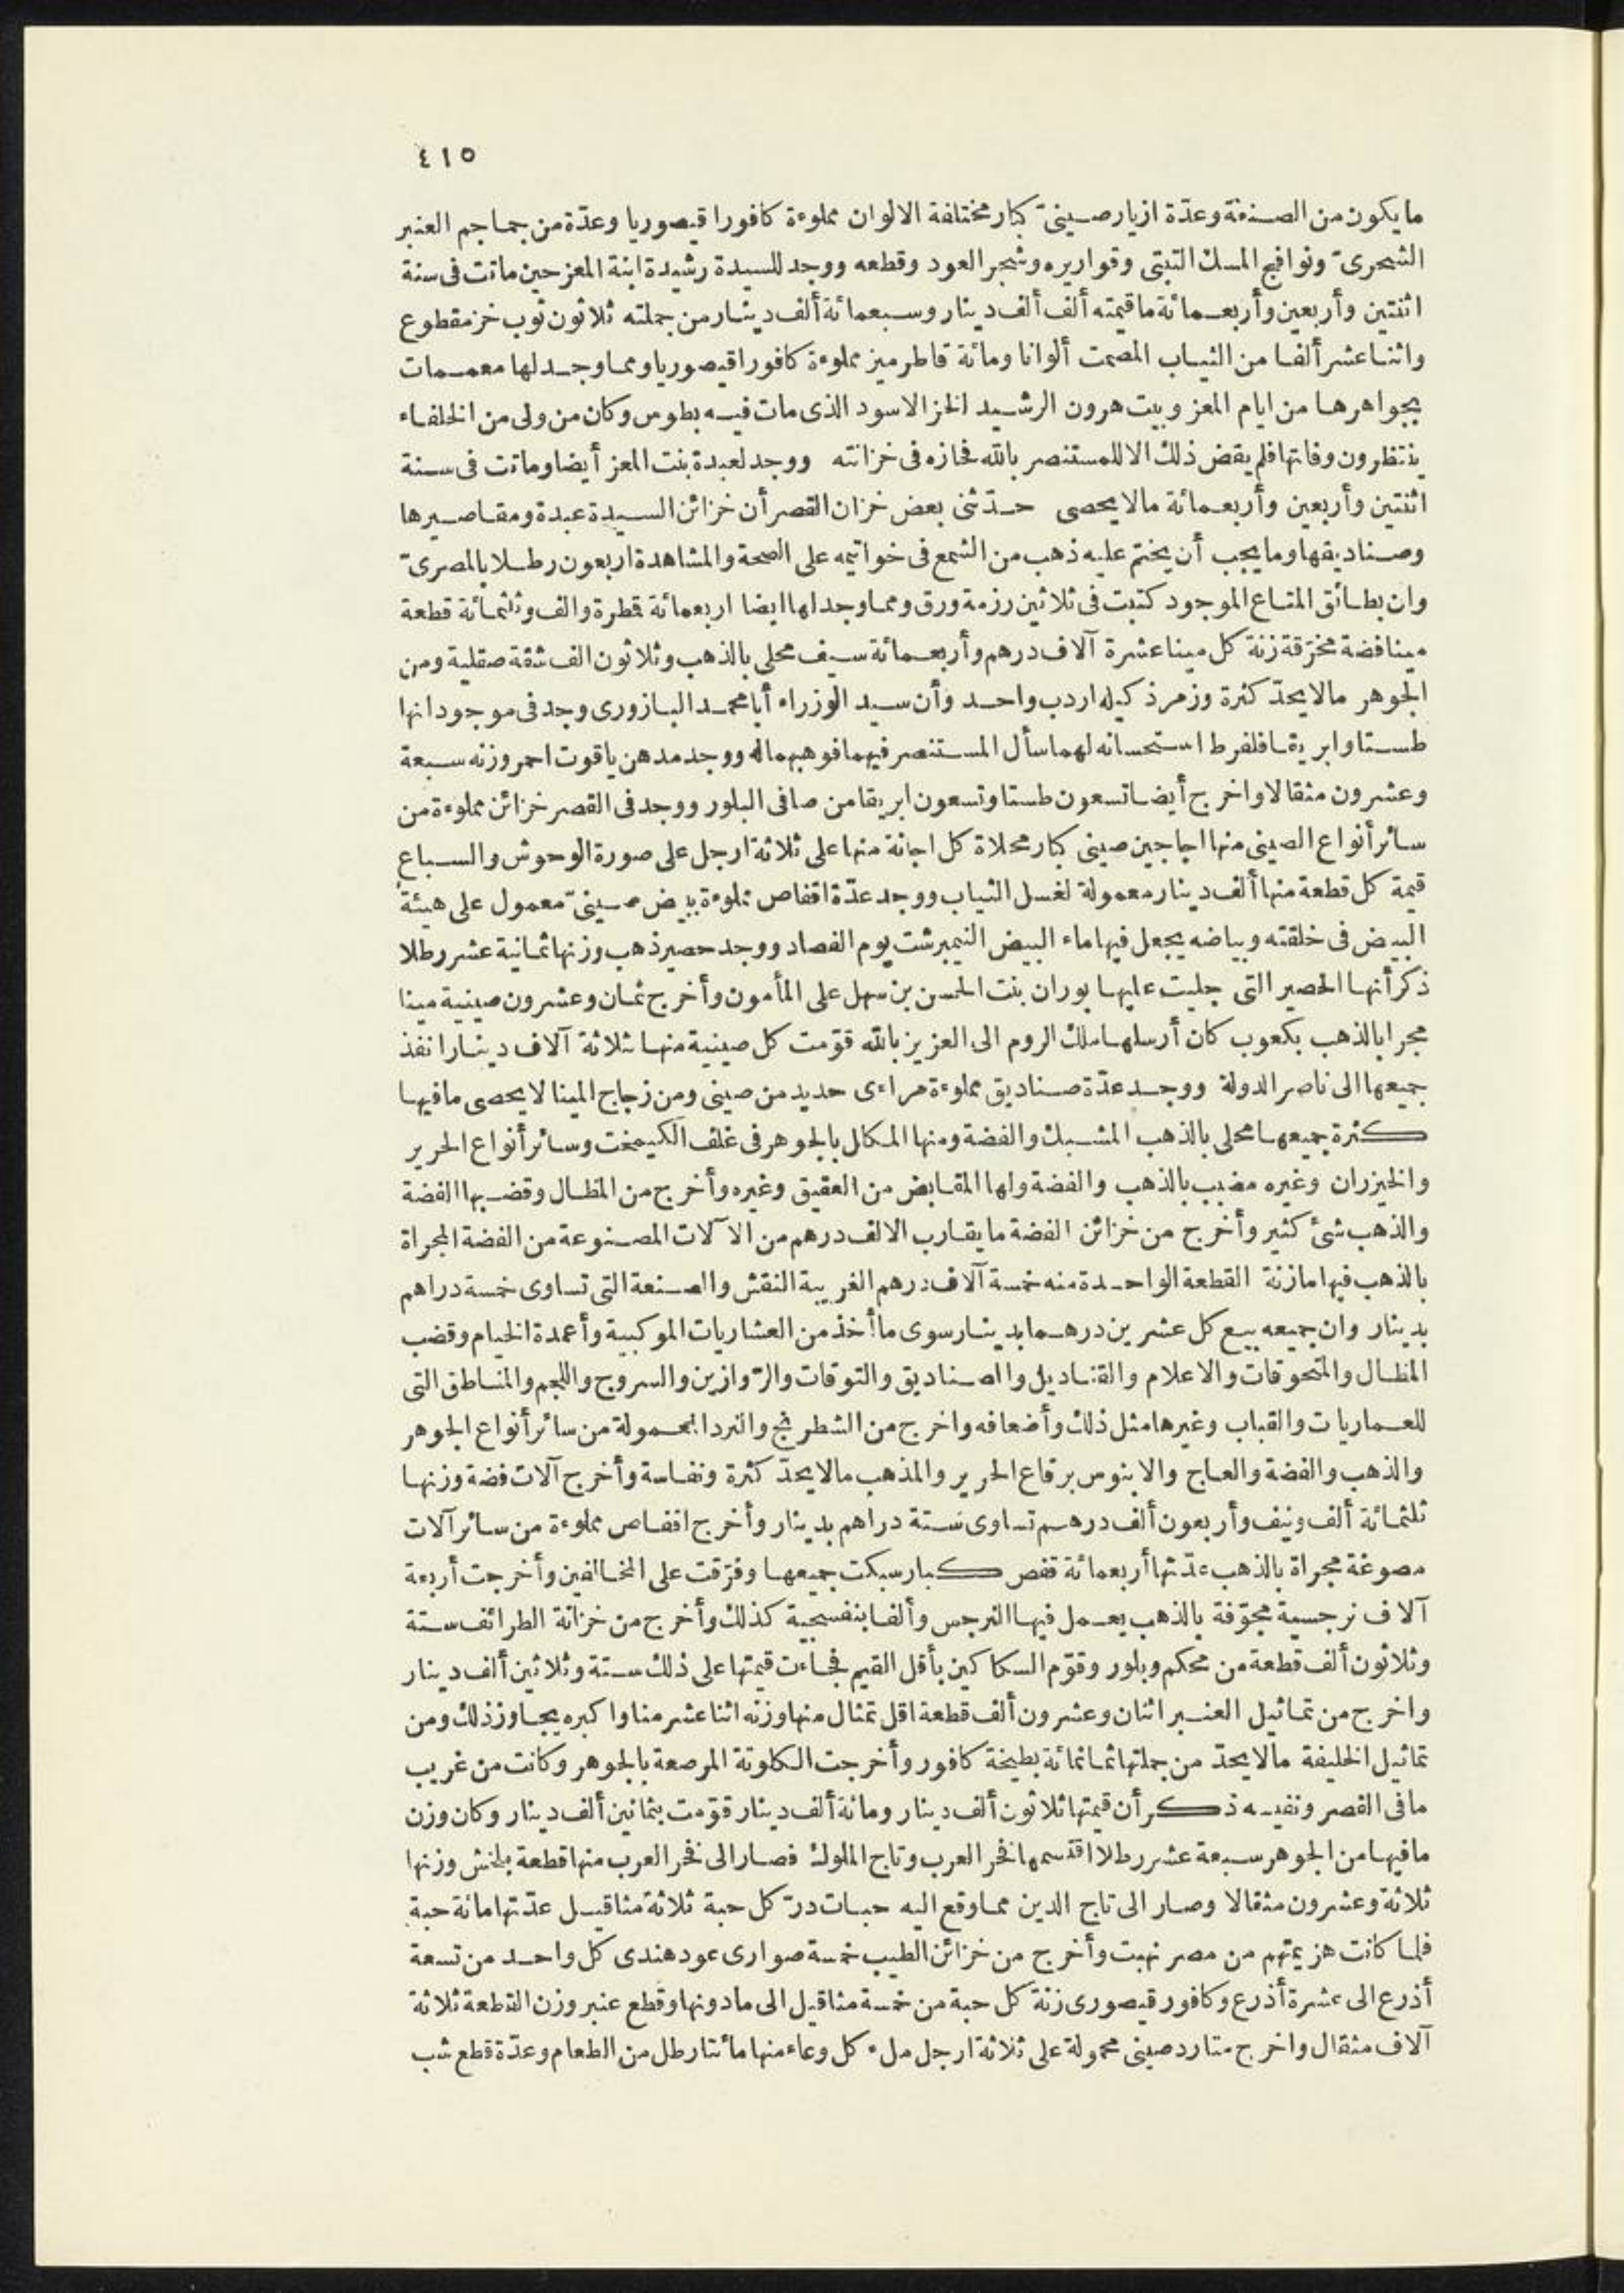 ٤١٥
ما يكون من الصنعة وعدّة ازيار صينىّ كبار مختلفة الالوان مملوءة كافورا قيصوريا وعدّة من جماجم العنبر
الشحرىّ ونوافج المسك التبتى وقواريره وشجر العود وقطعه ووجد للسيدة رشيدة ابنة المعز حين ماتت فى سنة
اثنتين وأربعين وأربعمائة ما قيمته ألف ألف دينار وسبعمائة ألف دينار من جملته ثلاثون ثوب خز مقطوع
واثنا عشر ألفا من الثياب المصمت ألوانا ومائة قاطرميز مملوءة كافورا قيصوريا ومما وجد لها معممات
بجواهرها من ايام المعز وبيت هرون الرشيد الخز الاسود الذى مات فيه بطوس وكان من ولى من الخلفاء
ينتظرون وفاتها فلم يقض ذلك الا للمستنصر بالله فحازه فى خزانته ووجد لعبدة بنت المعز أيضا وماتت فى سنة
اثنتين وأربعين وأربعمائة مالا يحصى حدّثنى بعض خزان القصر أن خزائن السيدة عبدة ومقاصيرها
وصناديقها وما يجب أن يختم عليه ذهب من الشمع فى خواتيمه على الصحة والمشاهدة اربعون رطلا بالمصرىّ
وان بطائق المتاع الموجود كتبت فى ثلاثين رزمة ورق ومما وجد لها ايضا اربعمائة قمطرة والف وثلثمائة قطعة
مينا فضة مخرّقة زنة كل مينا عشرة آلاف درهم وأربعمائة سيف محلى بالذهب وثلاثون الف شقة صقلية ومن
الجوهر مالا يحدّ كثرة وزمرذ كيله اردب واحد وأن سيد الوزراء أبا محمد اليازورى وجد فى موجودانها
طستا وابريقا فلفرط استحسانه لهما سأل المستنصر فيهما فوهبهما له ووجد مدهن ياقوت احمر وزنه سبعة
وعشرون مثقالا واخرج أيضا تسعون طستا وتسعون ابريقا من صافى البلور ووجد فى القصر خزائن مملوءة من
سائر أنواع الصينى منها اجاجين صينى كبار محلاة كل اجانة منها على ثلاثة ارجل على صورة الوحوش والسباع
قيمة كل قطعة منها ألف دينار معمولة لغسل الثياب ووجد عدّة اقفاص مملوءة بيض صينىّ معمول على هيئة
البيض فى خلقته وبياضه يجعل فيها ماء البيض النيمبرشت يوم الفصاد ووجد حصير ذهب وزنها ثمانية عشر رطلا
ذكر أنها الحصير التى جليت عليها بوران بنت الحسن بن سهل على المأمون وأخرج ثمان وعشرون صينية مينا
مجرا بالذهب بكعوب كان أرسلها ملك الروم الى العزيز بالله قوّمت كل صينية منها بثلاثة آلاف دينار انفذ
جميعها الى ناصر الدولة ووجد عدّة صناديق مملوءة مراءى حديد من صينى ومن زجاج المينا لا يحصى ما فيها
كثرة جميعها محلى بالذهب المشبك والفضة ومنها المكال بالجوهر فى غلف الكيمخت وسائر أنواع الحرير
والخيزران وغيره مضبب بالذهب والفضة ولها المقابض من العقيق وغيره وأخرج من المظال وقضبها الفضة
والذهب شئ كثير وأخرج من خزائن الفضة ما يقارب الالف درهم من الآلات المصنوعة من الفضة المجراة
بالذهب فيها مازنة القطعة الواحدة منه خمسة آلاف درهم الغريبة النقش والصنعة التى تساوى خمسة دراهم
بدينار وان جميعه بيع كل عشرين درهما بدينار سوى ما أخذ من العشاريات الموكبية وأعمدة الخيام وقضب
المظال والمتحوقات والاعلام والقناديل والصناديق والتوقات والرّوازين والسروج واللجم والمناطق التى
للعماريات والقباب وغيرها مثل ذلك وأضعافه واخرج من الشطرنج والنرد المعمولة من سائر أنواع الجوهر
والذهب والفضة والعاج والابنوس برقاع الحرير والمذهب مالا يحدّ كثرة ونفاسة وأخرج آلات فضة وزنها
ثلثمائة ألف ونيف وأربعون ألف درهم تساوى ستة دراهم بدينار وأخرج اقفاص مملوءة من سائر آلات
مصوغة مجراة بالذهب عدّتها أربعمائة قفص كبار سبكت جميعها وفرّقت على المخالفين وأخرجت أربعة
آلاف نرجسية مجوّفة بالذهب يعمل فيها النرجس وألفا بنفسجية كذلك وأخرج من خزانة الطرائف ستة
وثلاثون ألف قطعة من محكم وبلور وقوّم السكاكين بأقل القيم فجاءت قيمتها على ذلك ستة وثلاثين ألف دينار
واخرج من تماثيل العنبر اثنان وعشرون ألف قطعة اقل تمثال منها وزنه اثنا عشر منا واكبره يجاوز ذلك ومن
تماثيل الخليفة مالا يحدّ من جملتها ثمانمائة بطيخة كافور وأخرجت الكلوتة المرصعة بالجوهر وكانت من غريب
ما فى القصر ونفيسه ذكر أن قيمتها ثلاثون ألف دينار ومائة ألف دينار قوّمت بثمانين ألف دينار وكان وزن
ما فيها من الجوهر سبعة عشر رطلا اقتسمها فخر العرب وتاج الملوك فصار الى فخر العرب منها قطعة بلخش وزنها
ثلاثة وعشرون مثقالا وصار الى تاج الدين مما وقع اليه حبات درّ كل حبة ثلاثة مثاقيل عدّتها مائة حبة
فلما كانت هزيمتهم من مصر نهبت وأخرج من خزائن الطيب خمسة صوارى عود هندى كل واحد من تسعة
أذرع الى عشرة أذرع وكافور قيصورى زنة كل حبة من خمسة مثاقيل الى ما دونها وقطع عنبر وزن القطعة ثلاثة
آلاف مثقال واخرج متارد صينى محمولة على ثلاثة ارجل ملء كل وعاء منها مائتا رطل من الطعام وعدّة قطع شب